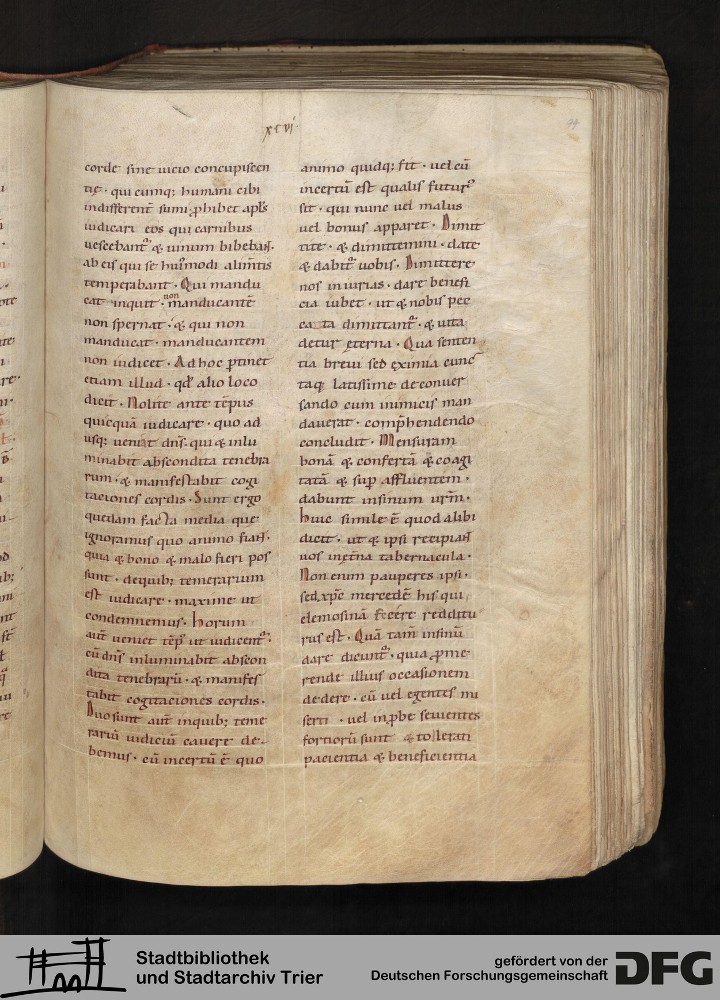 xcvi
corde sine uicio concupiscen
tie · qui cumq; humani cibi
indifferent̄ sumi ꝓhibet apl's
iudicari eos qui carnibus
uescebant᷑ & uinum bibebaɴt.
ab eis qui se hui'modi alim̄tis
temperabant · Qui mandu
cat inquit · non manducantē
non spernat · & qui non
manducat · manducantem
non iudicet · Ad hoc ꝑtinet
etiam illud · qd' alio loco
dicit · Nolite ante tēpus
quicquā iudicare · quo ad
usq; ueniat dn̄s · qui & inlu
minabit abscondita tenebra
rum · & manifestabit cogi
taciones cordis · Sunt ergo
quedam facta media que
ignoramus quo animo fiaɴt ·
quia & bono & malo fieri pos
sunt · de quib; temerarium
est iudicare · maxime ut
condemnemus · Horum
aūt ueniet tēp' ut iudicent᷑ ·
cū dn̄s inluminabit abscon
dita tenebrarū · & manifes
tabit cogitaciones cordis ·
Duo sunt aūt in quib; teme
rariū iudiciū cauere de-
bemus · cū incertū ē quo
animo quidq; fit · uel cū
incertū est qualis futur'
sit · qui nunc uel malus
uel bonus apparet · Dimit
tite · & dimittemini · date
& dabit᷑ uobis · Dimittere
nos iniurias · dare benefi
cia iubet · ut & nobis pec
ca ta dimittant᷑ · & uita
detur ęterna · Qua senten
tia breui sed eximia cunc
taq; latissime de conuer
sando cum inimicis man
dauerat · comp̄hendendo
concludit · Mensuram
bonā & confertā & coagi
tatā & suꝑ affluentem ·
dabunt in sinum urm̄ ·
Huic simile ē quod alibi
dicit · ut & ipsi recipiaɴt
uos in et̄na tabernacula ·
Non enim pauperes ipsi ·
sed xp̄c mercedē his qui
elemosinā fecēre redditu
rus est · Quā tam̄ in sinū
dare dicunt᷑ · quia ꝓme
rende illius occasionem
dedere · cū uel egentes mi
seri · uel inꝓbe seuientes
fortiorū sunt & tollerati
pacientia & beneficientia
Stadtbibliothek
und Stadtarchiv Trier
gefördert von der
Deutschen Forschungsgemeinschaft
DFG